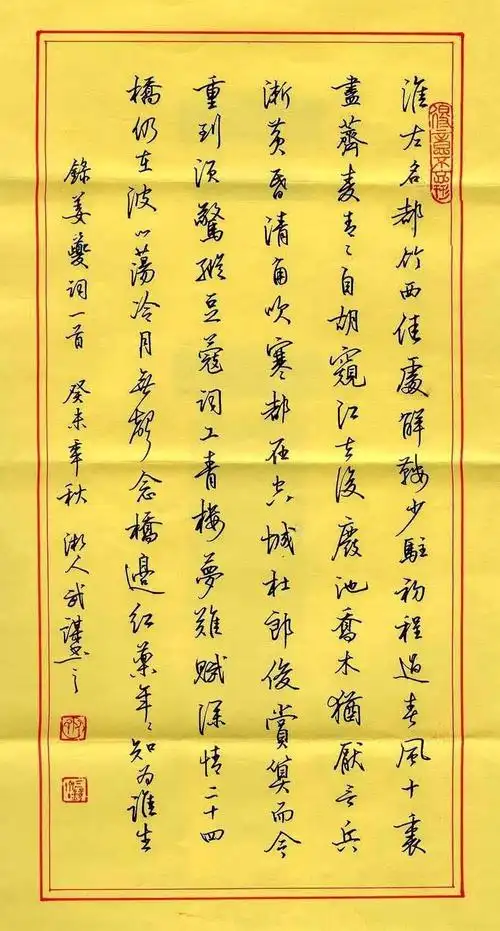 淮左名都竹西佳處解鞍少駐初程過春風十裏
盡薺麥青〻自胡窺江去後廢池喬木猶厭言兵
漸黃昏清角吹寒都在空城杜郎俊賞算而今
重到須驚縱豆蔻詞工青樓夢難賦深情二十四
橋仍在波心蕩冷月無聲念橋邊紅藥年〻知為誰生
錄姜夔詞一首 癸未年秋 人武謀書之